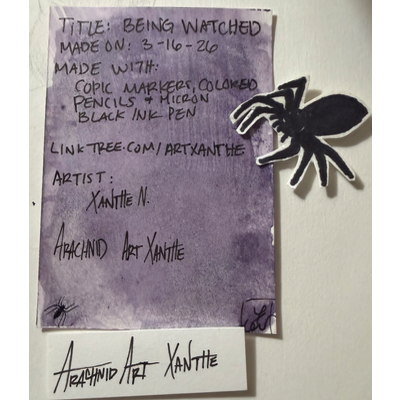 TITLE: BEING WATCHED
MADE ON: 3-16-26
MADE WITH:
COPIC MARKERS, COLORED
PENCILS + MICRON
BLACK INK PEN
LINKTREE.COM/ARTXANTHE
ARTIST:
XANTHE N.
ARACHNID ART XANTHE
ARACHNID ART XANTHE